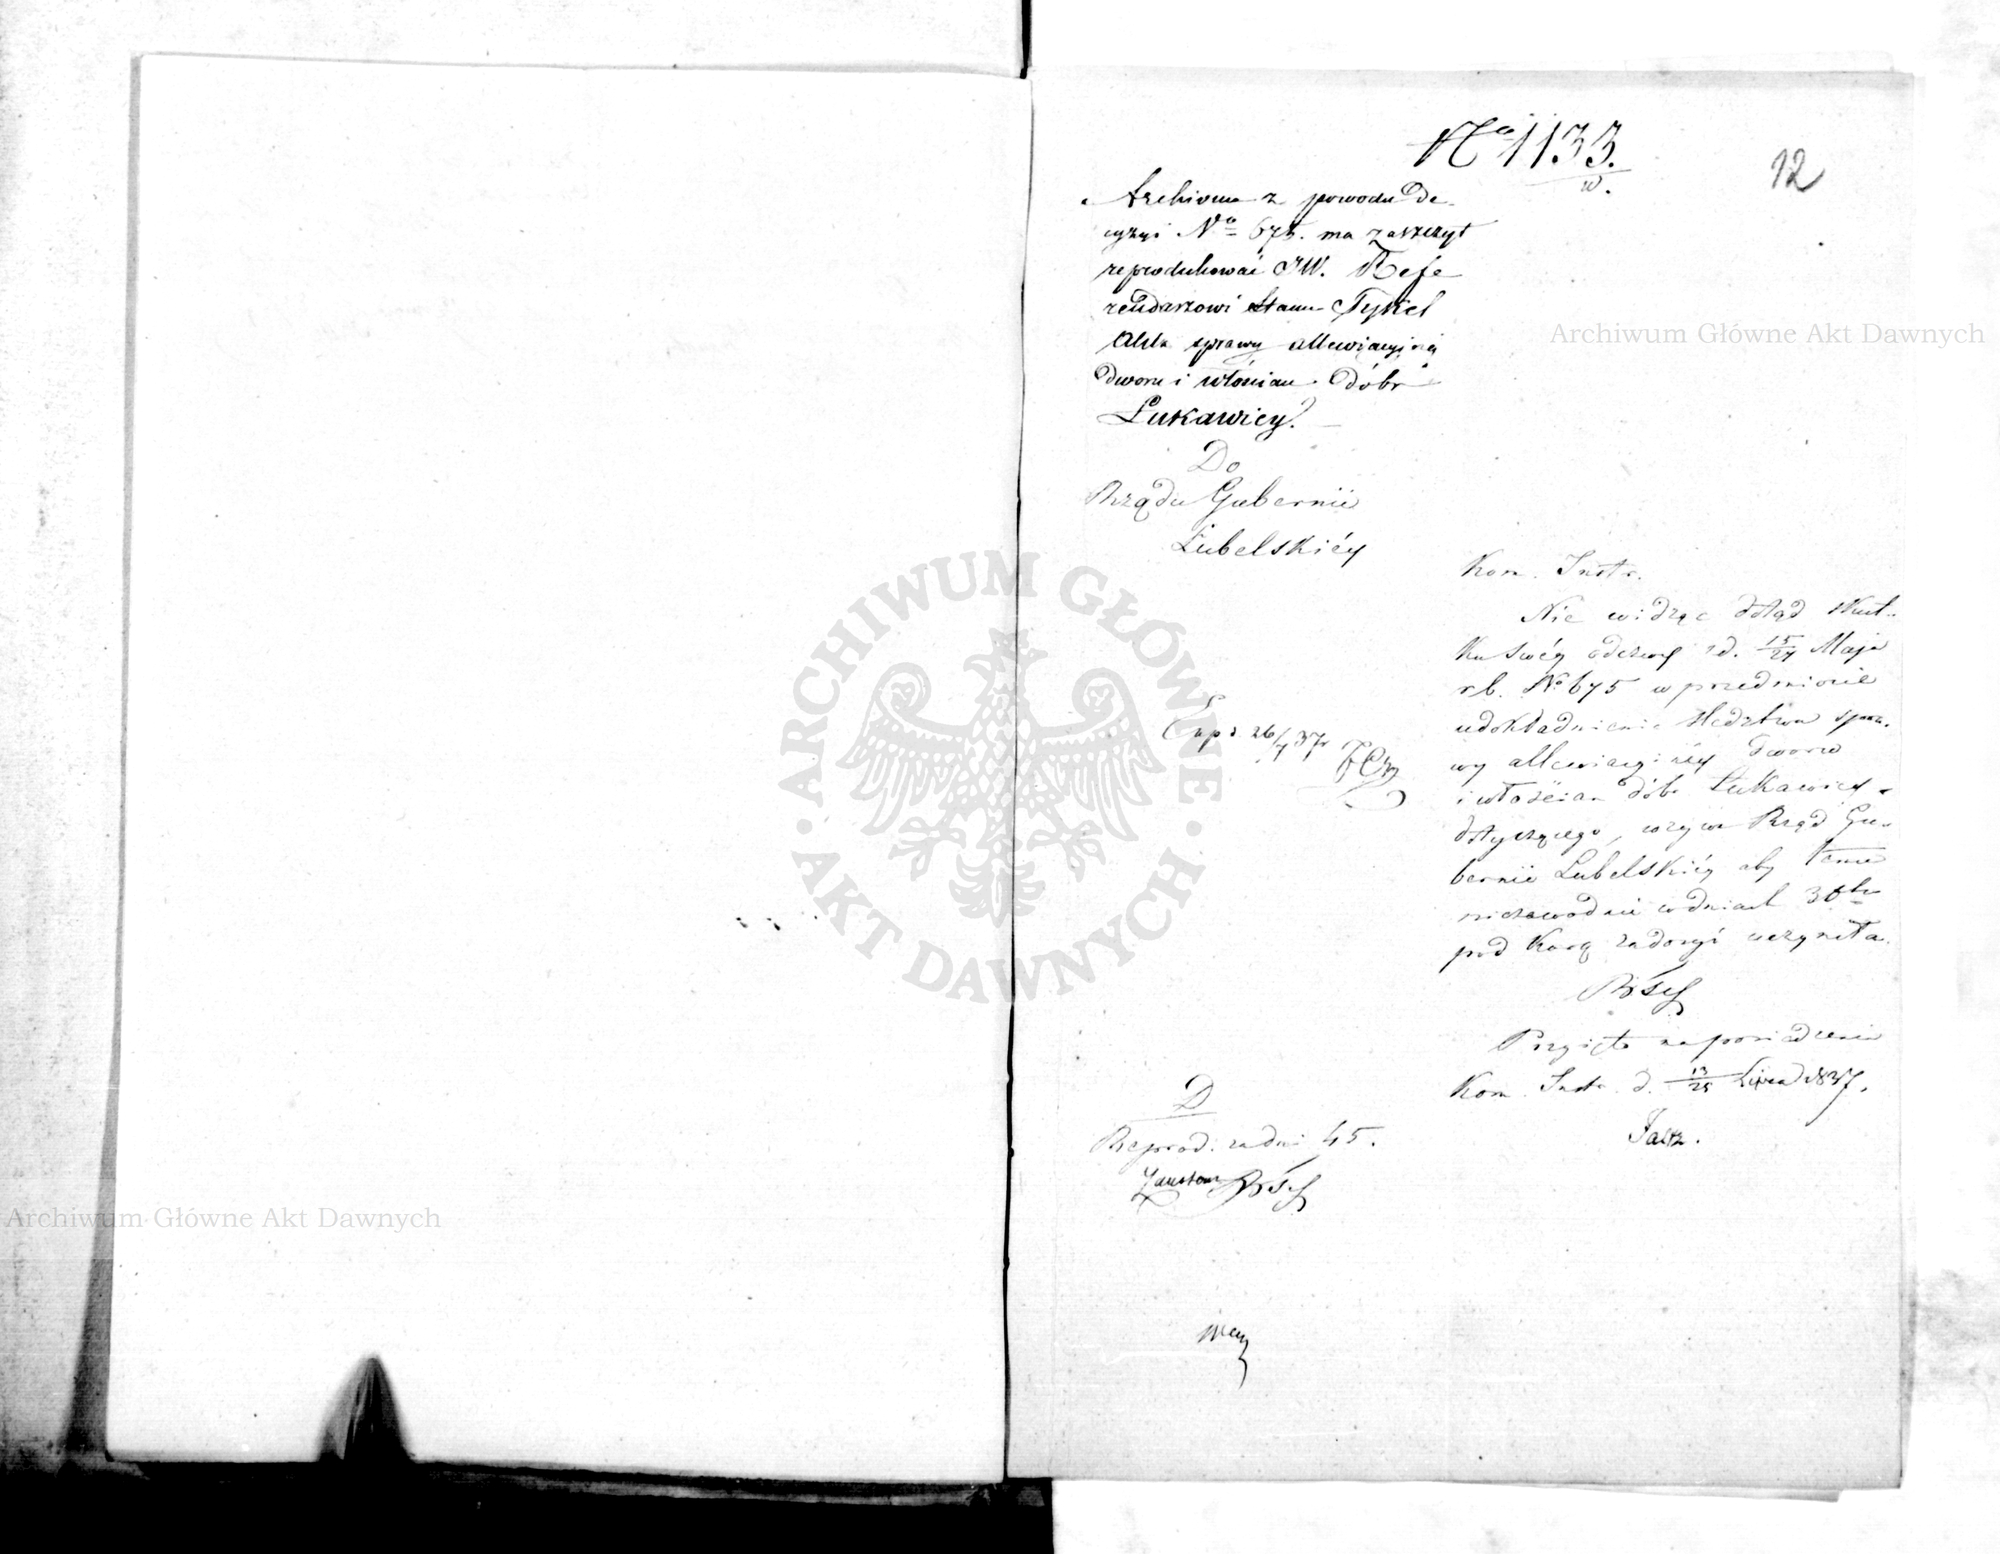 No 1133.
w.
12
Archiwum z powodu de-
cyzyi No 675. ma zaszczyt
reprodukować JW. Refe
rendarzowi Stanu Tykel
Akta sprawy allewiacyjnéj
dworu i włościan dóbr
Łukawicy.
Do
Rządu Gubernii
Lubelskiéy
Kom. Instr.
Nie widząc dotąd skut-
ku swéy odezwy z d. 15/27 Maja
r b. No 675 w przedmiocie
udokładnienia śledztwa spra-
wy allewiacyinéy dworu
i włościan dóbr Łukawicy
dotyczącego, wzywa Rząd Gu-
bernii Lubelskiéy aby temu
niezawodnie w dniach 30tu
pod karą zadosyć uczyniła.
Exp d. 26/7 37r
Przyięto na posiedzeniu
Kom. Instr. d. 13/25 Lipca 1837.
D
Reprod: za dni 45.
Archiwum Główne Akt Dawnych
Archiwum Główne Akt Dawnych
ARCHIWUM GŁÓWNE AKT DAWNYCH